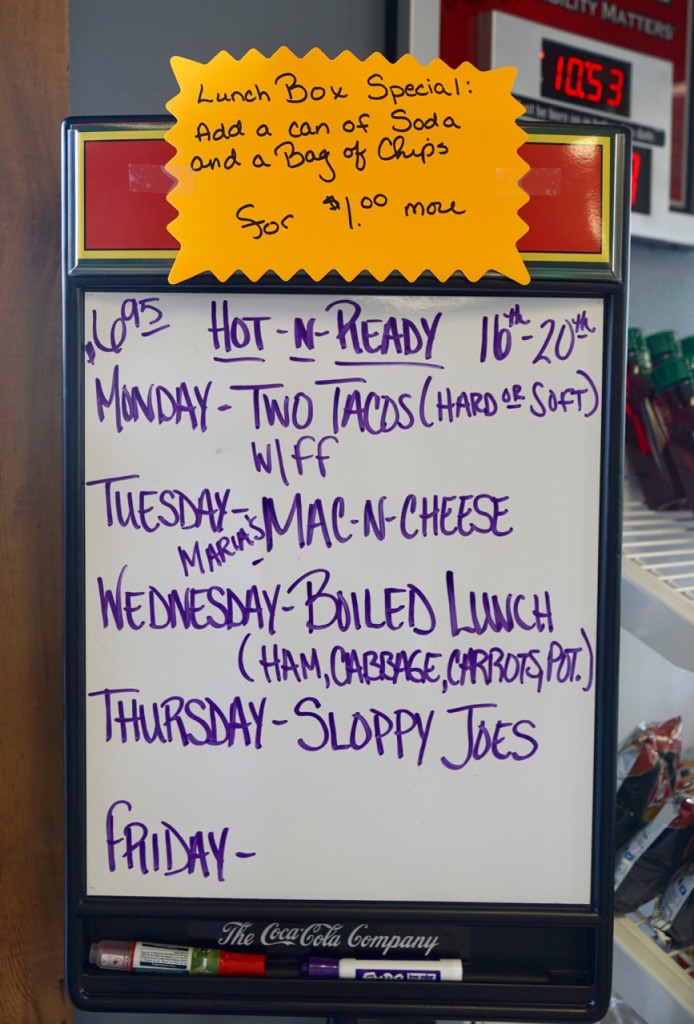 BILITY MATTERS
10.53
Lunch Box Special:
Add a can of Soda
and a Bag of Chips
for $1.00 more
$6.95 HOT-N-READY 16th-20th
MONDAY- TWO TACOS (HARD OR SOFT)
W/FF
TUESDAY- MARIA'S MAC-N-CHEESE
WEDNESDAY- BOILED LUNCH
(HAM, CABBAGE, CARROTS, POT.)
THURSDAY- SLOPPY JOES
FRIDAY-
The Coca-Cola Company
EXPO